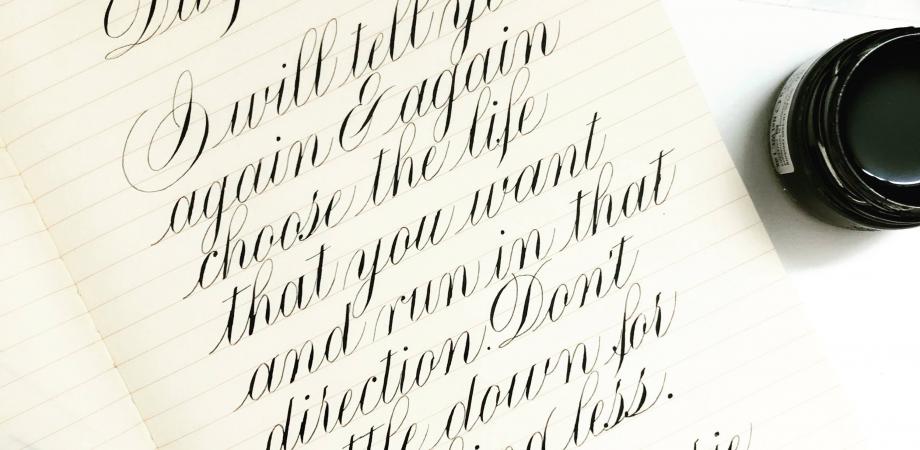 I will tell
again & again
choose the life
that you want
and run in that
direction. Don't
down for
less.